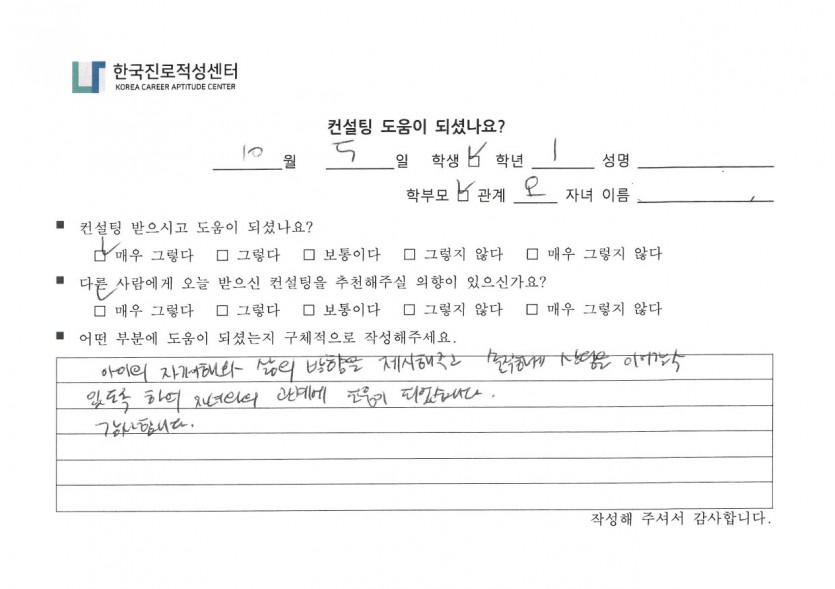 한국진로적성센터
KOREA CAREER APTITUDE CENTER
컨설팅 도움이 되셨나요?
10 월 5 일 학생 ☑ 학년 1 성명
학부모 ☑ 관계 모 자녀 이름
■ 컨설팅 받으시고 도움이 되셨나요?
☑ 매우 그렇다 □ 그렇다 □ 보통이다 □ 그렇지 않다 □ 매우 그렇지 않다
■ 다른 사람에게 오늘 받으신 컨설팅을 추천해주실 의향이 있으신가요?
☑ 매우 그렇다 □ 그렇다 □ 보통이다 □ 그렇지 않다 □ 매우 그렇지 않다
■ 어떤 부분에 도움이 되셨는지 구체적으로 작성해주세요.
아이의 자기이해와 삶의 방향을 제시해주고 상담을 이어갈수
있도록 하여 자녀와의 관계에 도움이 되었습니다.
감사합니다.
작성해 주셔서 감사합니다.